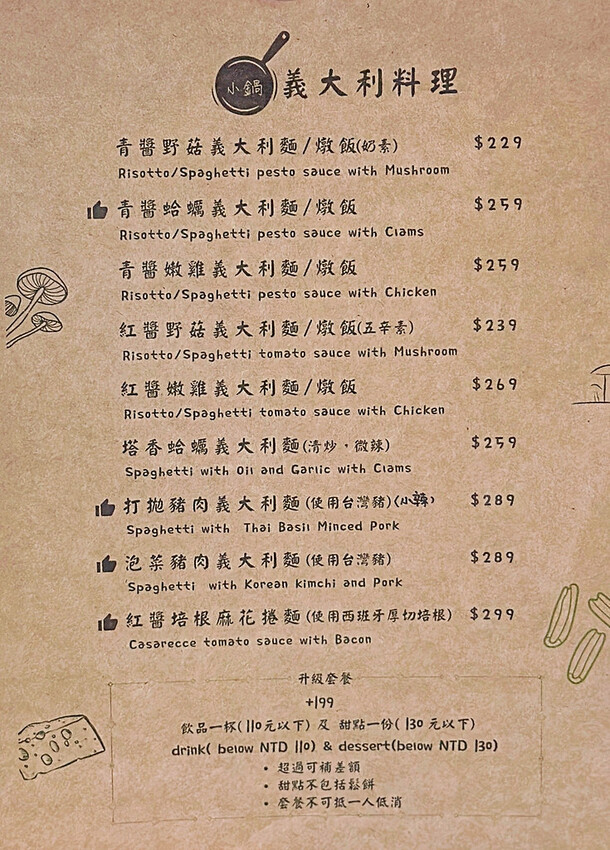 小鍋 義大利料理
青醬野菇義大利麵/燉飯(奶素) $229
Risotto/Spaghetti pesto sauce with Mushroom
青醬蛤蠣義大利麵/燉飯 $259
Risotto/Spaghetti pesto sauce with Clams
青醬嫩雞義大利麵/燉飯 $259
Risotto/Spaghetti pesto sauce with Chicken
紅醬野菇義大利麵/燉飯(五辛素) $239
Risotto/Spaghetti tomato sauce with Mushroom
紅醬嫩雞義大利麵/燉飯 $269
Risotto/Spaghetti tomato sauce with Chicken
塔香蛤蠣義大利麵(清炒，微辣) $259
Spaghetti with Oil and Garlic with Clams
打拋豬肉義大利麵(使用台灣豬)(小辣) $289
Spaghetti with Thai Basil Minced Pork
泡菜豬肉義大利麵(使用台灣豬) $289
Spaghetti with Korean kimchi and Pork
紅醬培根麻花捲麵(使用西班牙厚切培根) $299
Casarecce tomato sauce with Bacon
升級套餐
+199
飲品一杯(110元以下) 及 甜點一份(130元以下)
drink( below NTD 110) & dessert(below NTD 130)
• 超過可補差額
• 甜點不包括鬆餅
• 套餐不可抵一人低消